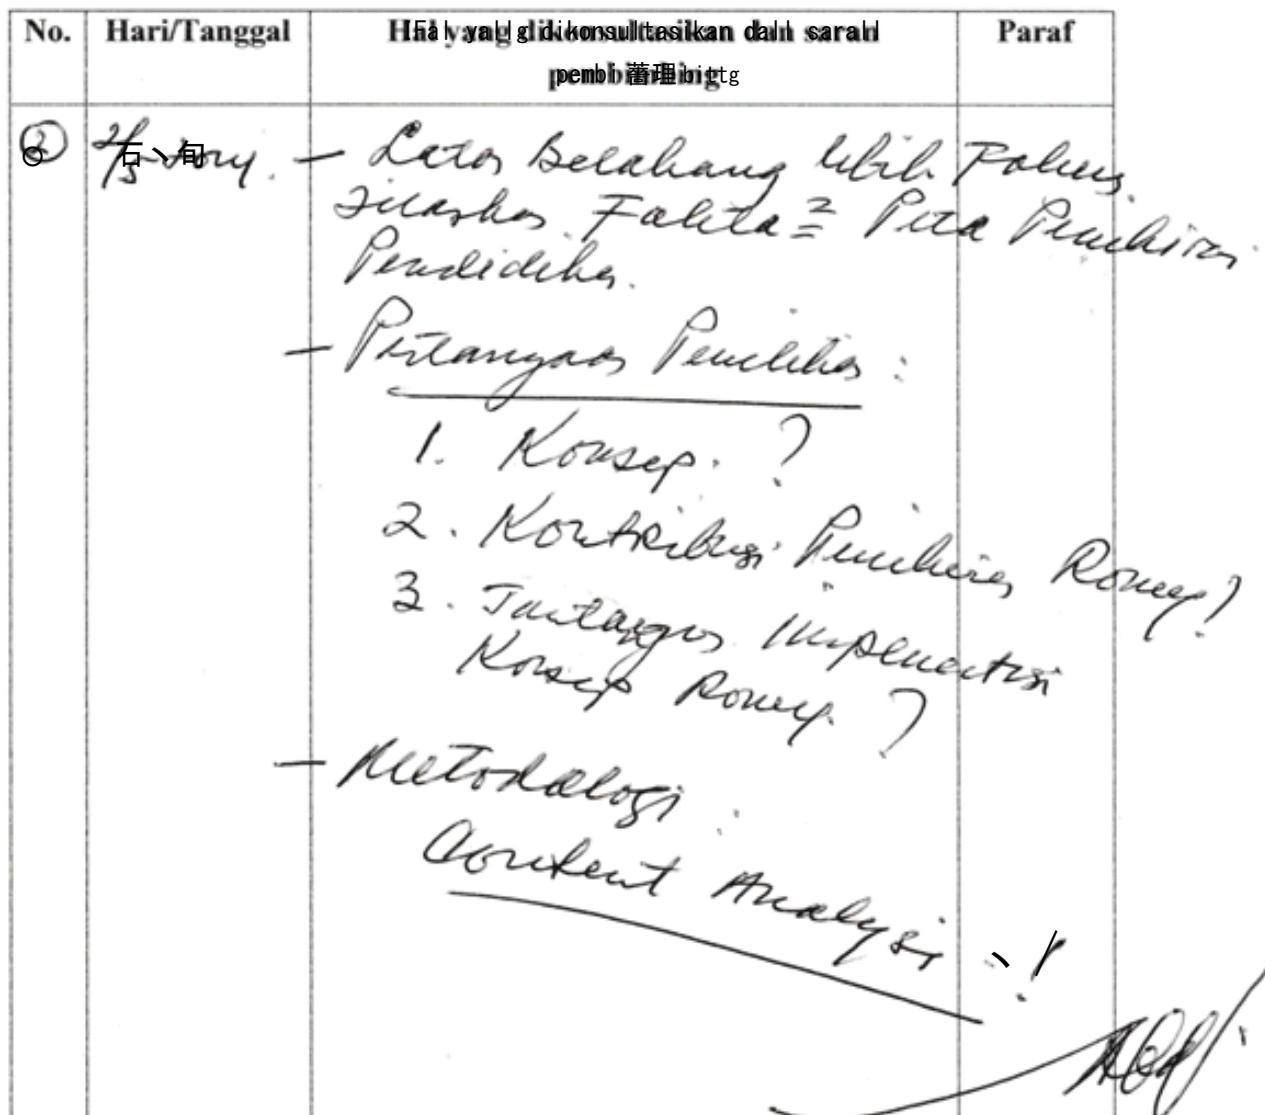 No. Hari/Tanggal Hal yang dikonsultasikan dan saran Paraf
pembimbing
2 - Latar Belakang lebih Fokus
Fakta2 Peta Pemikiran
Pendidikan.
- Pertanyaan Penelitian :
1. Konsep. ?
2. Kontribusi Pemikiran Romey?
3. Tantangan Implementasi
Konsep Romey. ?
- Metodologi :
Content Analysis - !